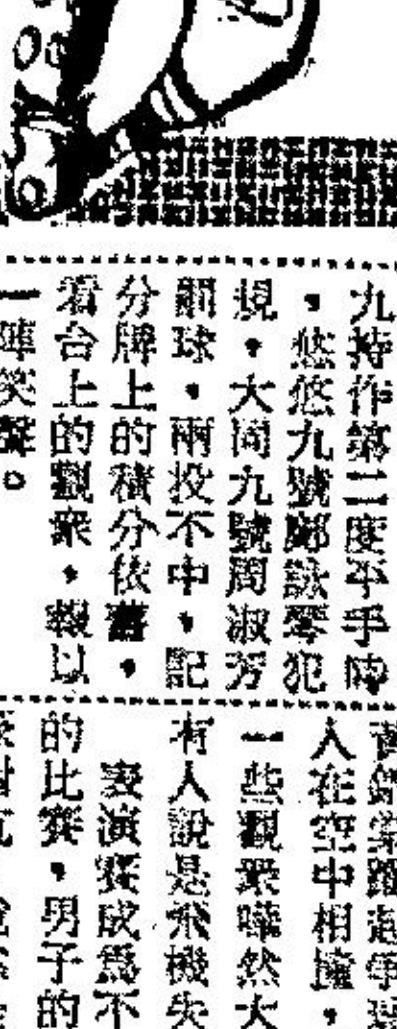 九持作第二度平手時
，悠悠九號鄭詠琴犯
規，大同九號周淑芳
罰球，兩投不中，記
分牌上的積分依舊，
看台上的觀衆，報以
一陣笑聲。
人在空中相撞，
一些觀衆嘩然大
有人說是飛機失
表演賽成爲不
的比賽，男子的